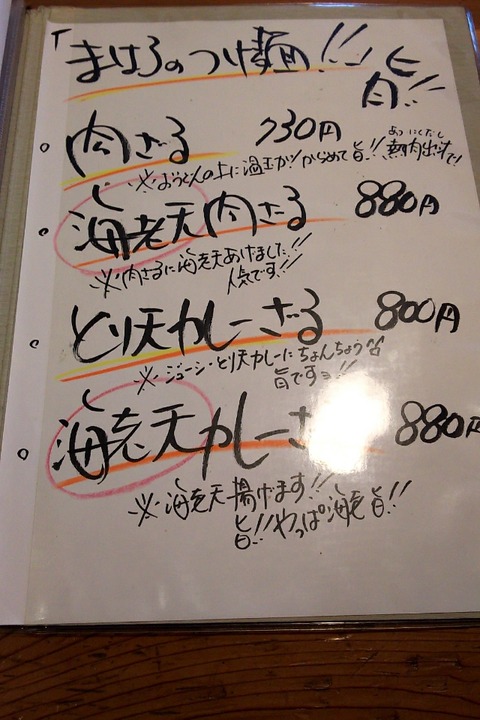 まはろのつけ麺!!
旨!!
肉ざる 730円
あつ にくだし
※おうどんの上に温玉がからめて旨!! 熱肉出汁で!
海老天肉ざる 880円
※肉ざるに海老天あげました!!
人気です!!
とり天カレーざる 800円
※ジューシーとり天カレーにちょんちょう
旨ですョ!!
海老天カレーざ 880円
※海老天揚げます!!
旨!! やっぱ海老旨!!